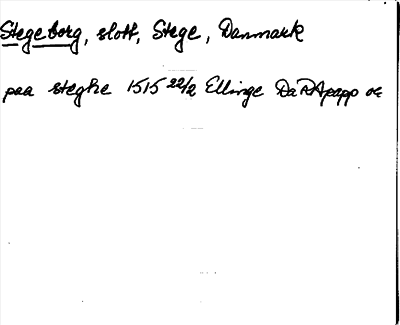 Stegeborg, slott, Stege, Danmark
paa steghe 1515 22/2 Ellinge DaRApapp or